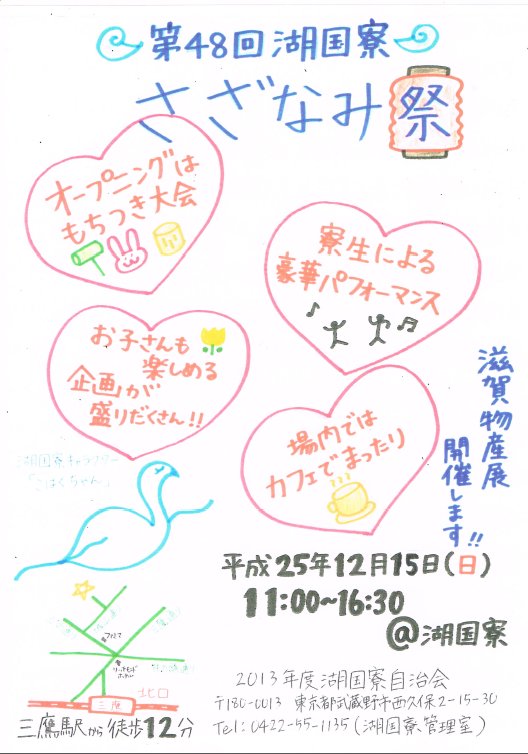 第48回 湖国寮
さざなみ祭
オープニングは
もちつき大会
寮生による
豪華パフォーマンス
お子さんも
楽しめる
企画が
盛りだくさん!!
場内では
カフェでまったり
滋賀物産展
開催します!!
湖国寮キャラクター
「こはくちゃん」
平成25年12月15日(日)
11:00~16:30
@湖国寮
北口
三鷹
三鷹駅から徒歩12分
2013年度湖国寮自治会
〒180-0013 東京都武蔵野市西久保2-15-30
Tel:0422-55-1135(湖国寮管理室)